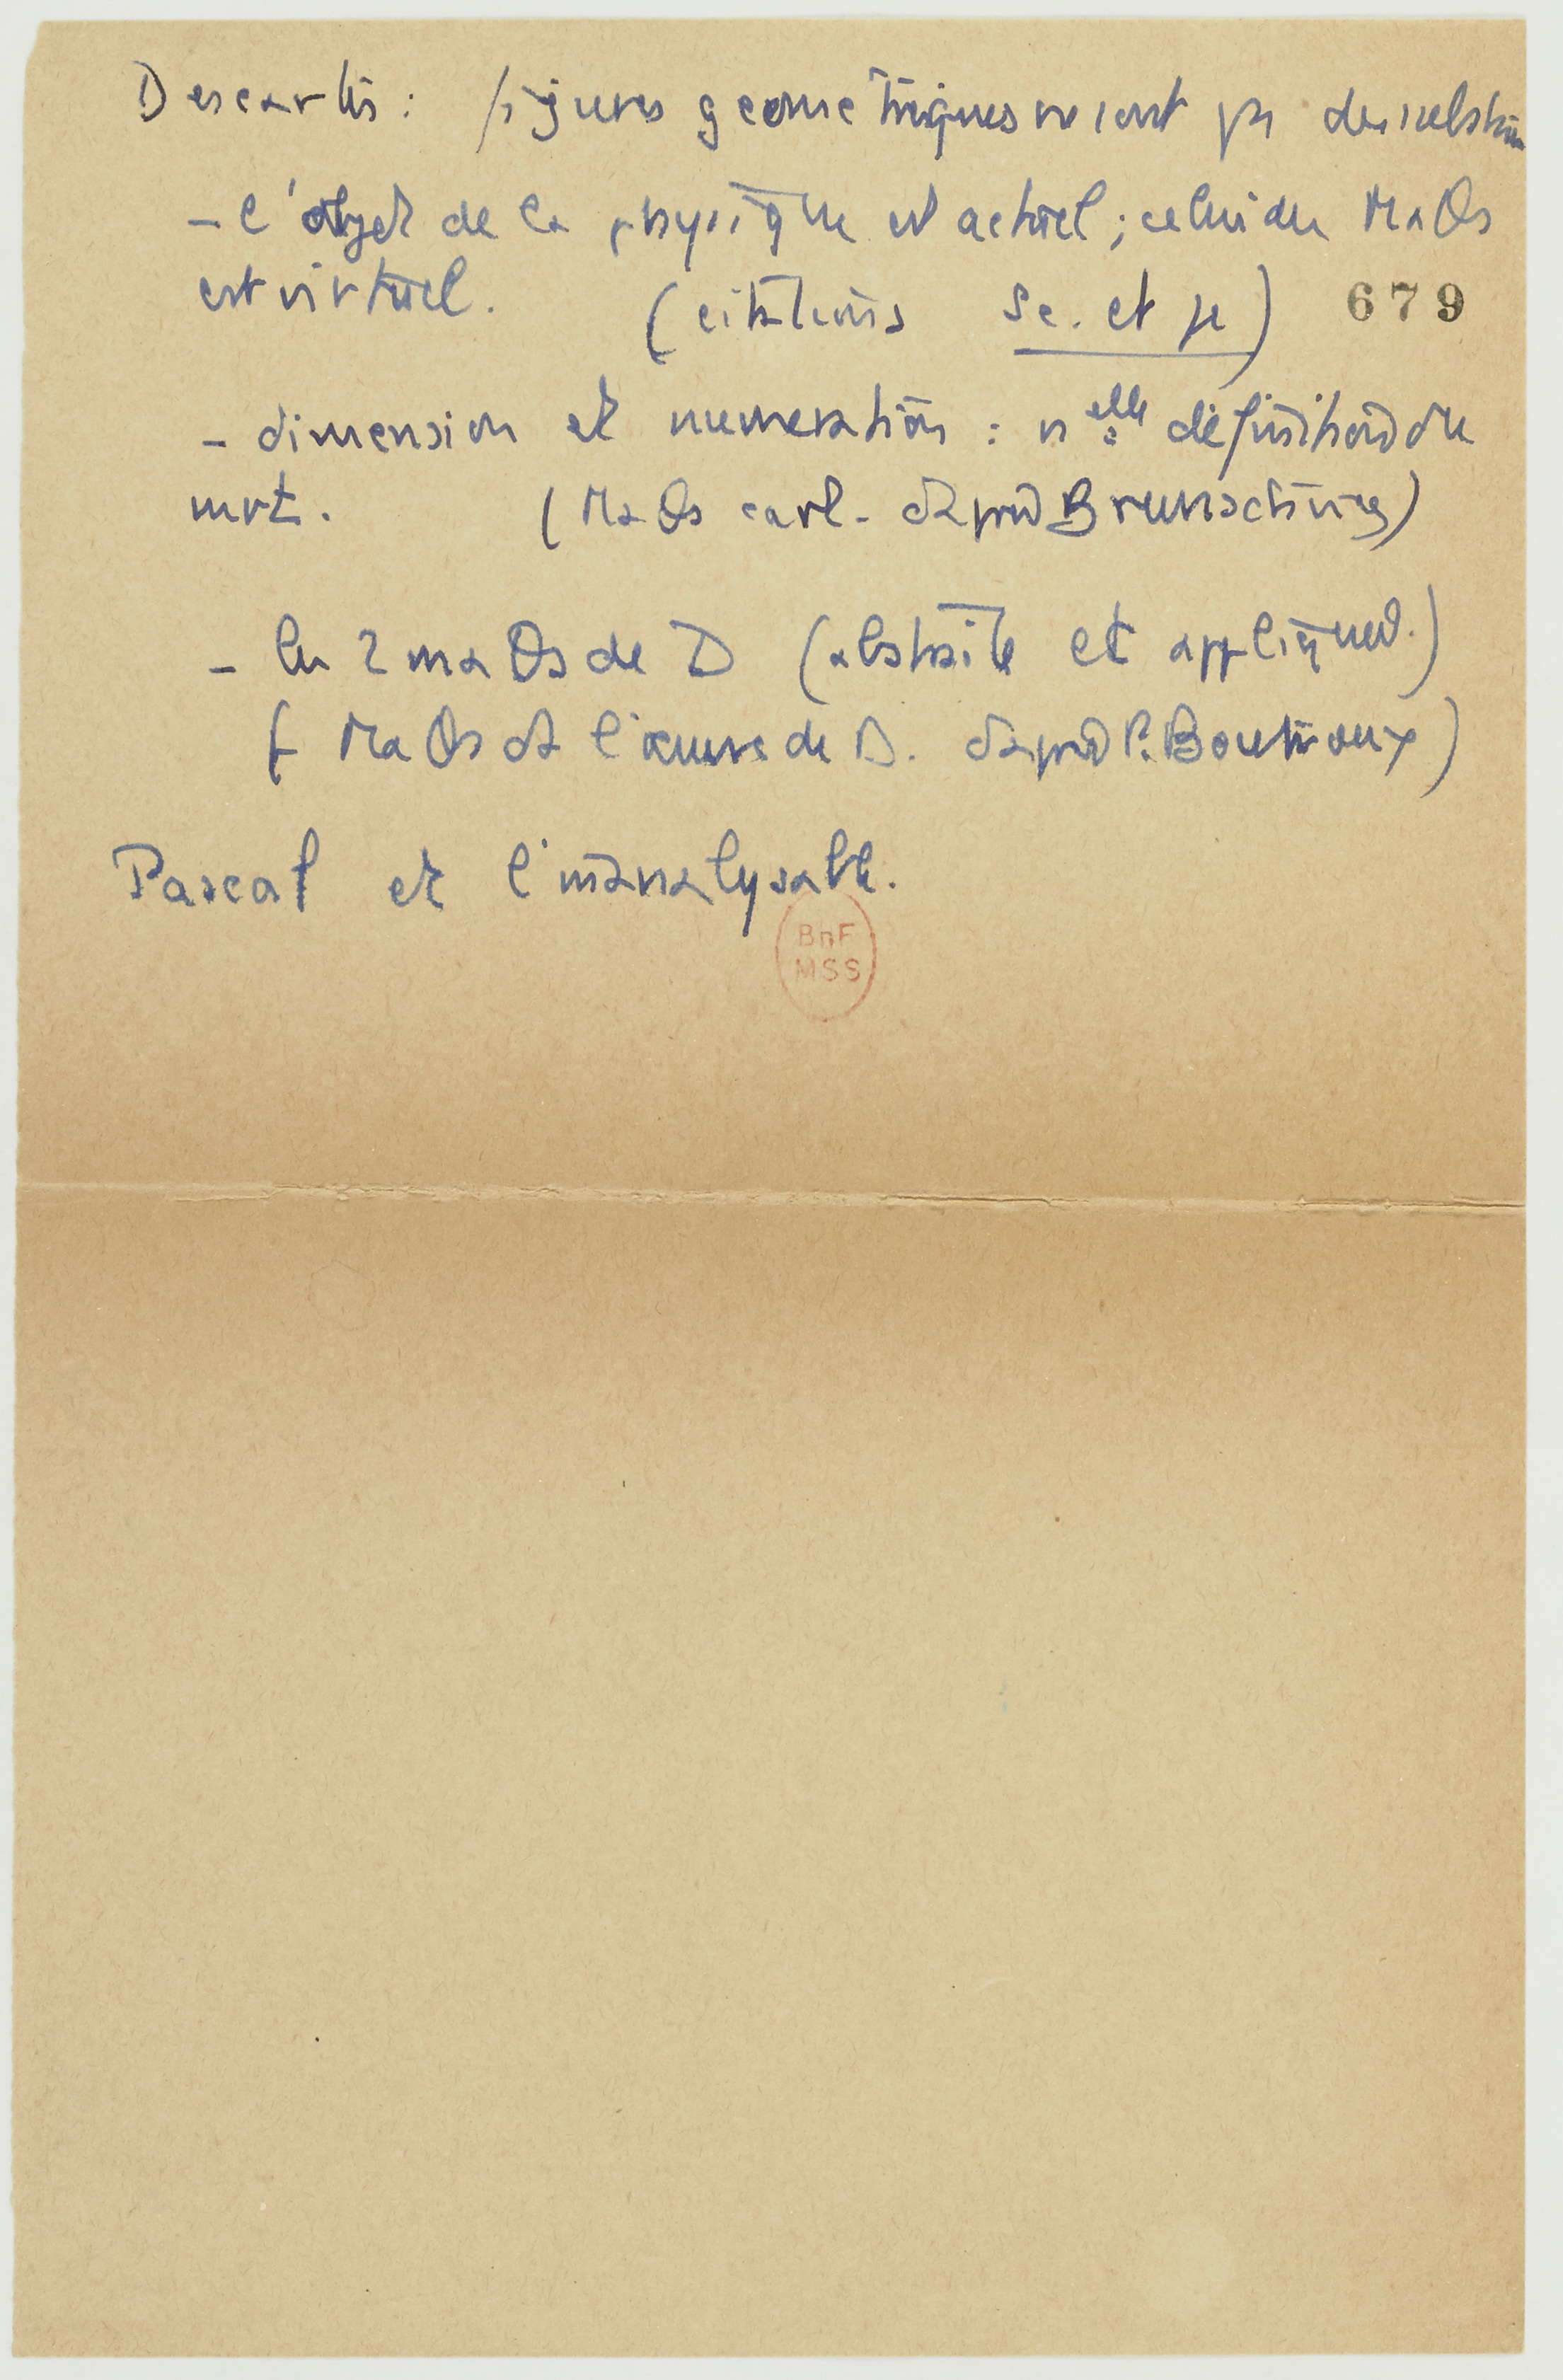 Descartes : figures géométriques ne sont pas des substan
- l'objet de la physique est actuel ; celui des Maθs
est virtuel. (citations Sc. et
679
- dimension et numération : nelle définition du
mvt. (Maθs cart. d'après Brunschvicg)
- les 2 maθs de D (abstraite et appliquée.)
( Maθs ds l'œuvre de D. d'après P. Boutroux)
Pascal et l'inanalysable.
BnF
MSS